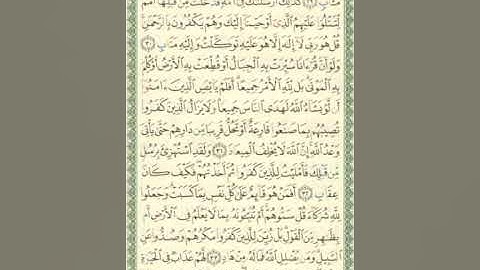 مَـَٔابٍ ﴿٢٩﴾ كَذَٰلِكَ أَرْسَلْنَٰكَ فِىٓ أُمَّةٍ قَدْ خَلَتْ مِن قَبْلِهَآ أُمَمٌ
لِّتَتْلُوَا۟ عَلَيْهِمُ ٱلَّذِىٓ أَوْحَيْنَآ إِلَيْكَ وَهُمْ يَكْفُرُونَ بِٱلرَّحْمَٰنِ
قُلْ هُوَ رَبِّى لَآ إِلَٰهَ إِلَّا هُوَ عَلَيْهِ تَوَكَّلْتُ وَإِلَيْهِ مَتَابِ ﴿٣٠﴾
وَلَوْ أَنَّ قُرْءَانًا سُيِّرَتْ بِهِ ٱلْجِبَالُ أَوْ قُطِّعَتْ بِهِ ٱلْأَرْضُ أَوْ كُلِّمَ
بِهِ ٱلْمَوْتَىٰ بَل لِّلَّهِ ٱلْأَمْرُ جَمِيعًا أَفَلَمْ يَا۟يْـَٔسِ ٱلَّذِينَ ءَامَنُوٓا۟
أَن لَّوْ يَشَآءُ ٱللَّهُ لَهَدَى ٱلنَّاسَ جَمِيعًا وَلَا يَزَالُ ٱلَّذِينَ كَفَرُوا۟
تُصِيبُهُم بِمَا صَنَعُوا۟ قَارِعَةٌ أَوْ تَحُلُّ قَرِيبًا مِّن دَارِهِمْ حَتَّىٰ يَأْتِىَ
وَعْدُ ٱللَّهِ إِنَّ ٱللَّهَ لَا يُخْلِفُ ٱلْمِيعَادَ ﴿٣١﴾ وَلَقَدِ ٱسْتُهْزِئَ بِرُسُلٍ
مِّن قَبْلِكَ فَأَمْلَيْتُ لِلَّذِينَ كَفَرُوا۟ ثُمَّ أَخَذْتُهُمْ فَكَيْفَ كَانَ
عِقَابِ ﴿٣٢﴾ أَفَمَنْ هُوَ قَآئِمٌ عَلَىٰ كُلِّ نَفْسٍۭ بِمَا كَسَبَتْ وَجَعَلُوا۟
لِلَّهِ شُرَكَآءَ قُلْ سَمُّوهُمْ أَمْ تُنَبِّـُٔونَهُۥ بِمَا لَا يَعْلَمُ فِى ٱلْأَرْضِ أَم
بِظَٰهِرٍ مِّنَ ٱلْقَوْلِ بَلْ زُيِّنَ لِلَّذِينَ كَفَرُوا۟ مَكْرُهُمْ وَصُدُّوا۟ عَنِ
ٱلسَّبِيلِ وَمَن يُضْلِلِ ٱللَّهُ فَمَا لَهُۥ مِنْ هَادٍ ﴿٣٣﴾ لَّهُمْ عَذَابٌ فِى ٱلْحَيَوٰةِ